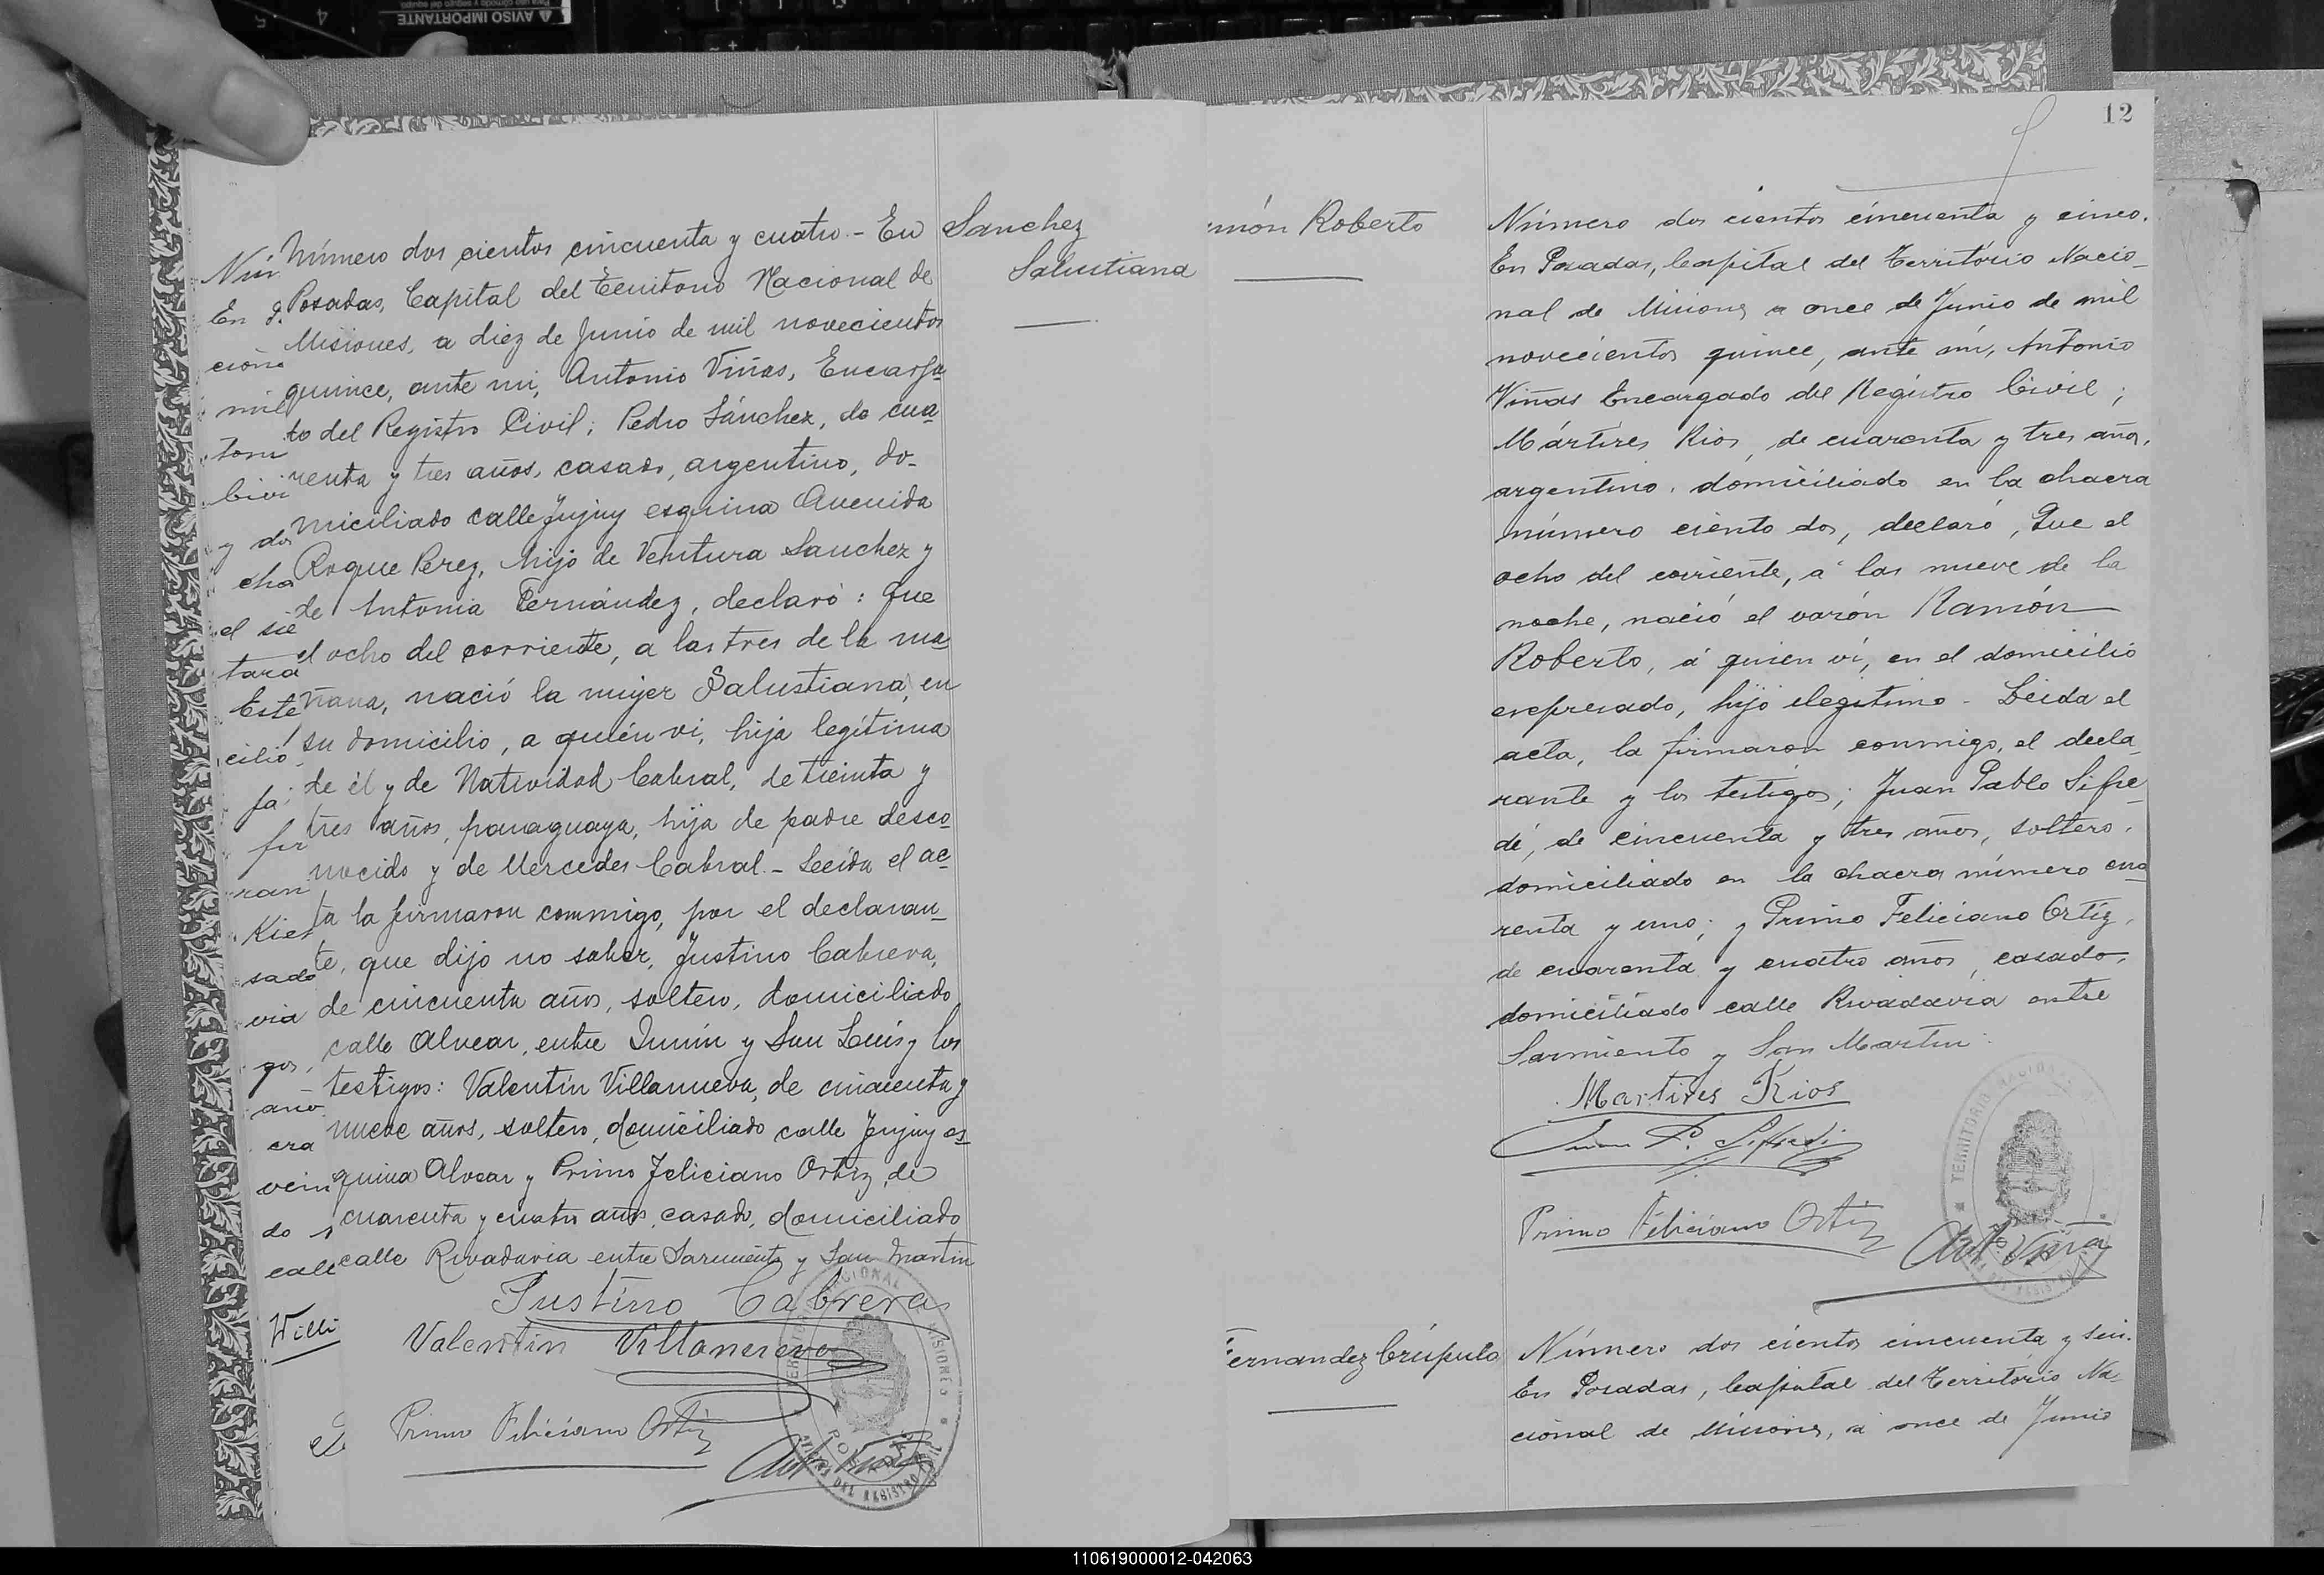 AVISO IMPORTANTE
Número dos cientos cincuenta y cuatro. - En
Posadas, Capital del Territorio Nacional de
Misiones, a diez de Junio de mil novecientos
quince, ante mi, Antonio Viñas, Encarga
do del Registro Civil; Pedro Sánchez, de cua
renta y tres años, casado, argentino, do-
miciliado calle Jujuy esquina Avenida
Roque Perez, hijo de Ventura Sanchez y
de Antonia Fernández, declaró: que
el ocho del corriente, a las tres de la ma
ñana, nació la mujer Salustiana, en
su domicilio, a quién vi, hija legítima
de él y de Natividad Cabral, de treinta y
tres años, paraguaya, hija de padre desco
nocido y de Mercedes Cabral. - Leída el ac
ta la firmaron conmigo, por el declaran
te, que dijo no saber, Justino Cabrera,
de cincuenta años, soltero, domiciliado
calle Alvear, entre Junín y San Luis y los
testigos: Valentín Villanueva, de cincuenta y
nueve años, soltero, domiciliado calle Jujuy es
quina Alvear y Primo Feliciano Ortiz, de
cuarenta y cuatro años, casado, domiciliado
calle Rivadavia entre Sarmiento y San Martin
Justino Cabrera
Valentin Villanueva
Primo Feliciano Ortiz
Sanchez
Salustiana
Nún
En
cion
mil
toni
Civi
y do
cha
el sie
tara
Este
cilio
fa
fir
ran
Kie
sado
via
gos,
año
era
vein
do
call
Willi
12
món Roberto
Número dos cientos cincuenta y cinco.
En Posadas, Capital del Territorio Nacio-
nal de Misiones a once de Junio de mil
novecientos quince, ante mí, Antonio
Viñas Encargado del Registro Civil;
Mártires Rios, de cuarenta y tres años,
argentino, domiciliado en la chacra
número ciento dos, declaró, Que el
ocho del corriente, á las nueve de la
noche, nació el varón Ramón
Roberto, á quien ví, en el domicilio
expresado, hijo ilegítimo - Leida el
acta, la firmaron conmigo, el decla
rante y los testigos; Juan Pablo Sifre
dé, de cincuenta y tres años, soltero,
domiciliado en la chacra número cua
renta y uno; y Primo Feliciano Ortíz,
de cuarenta y cuatro años, casado,
domiciliado calle Rivadavia entre
Sarmiento y San Martin.
Martires Rios
Juan P. Sifredi
Primo Feliciano Ortiz
TERRITORIO NACIONAL
ernandez Críspulo
Número dos cientos cincuenta y seis.
En Posadas, Capital del Territorio Na-
cional de Misiones, á once de Junio
110619000012-042063